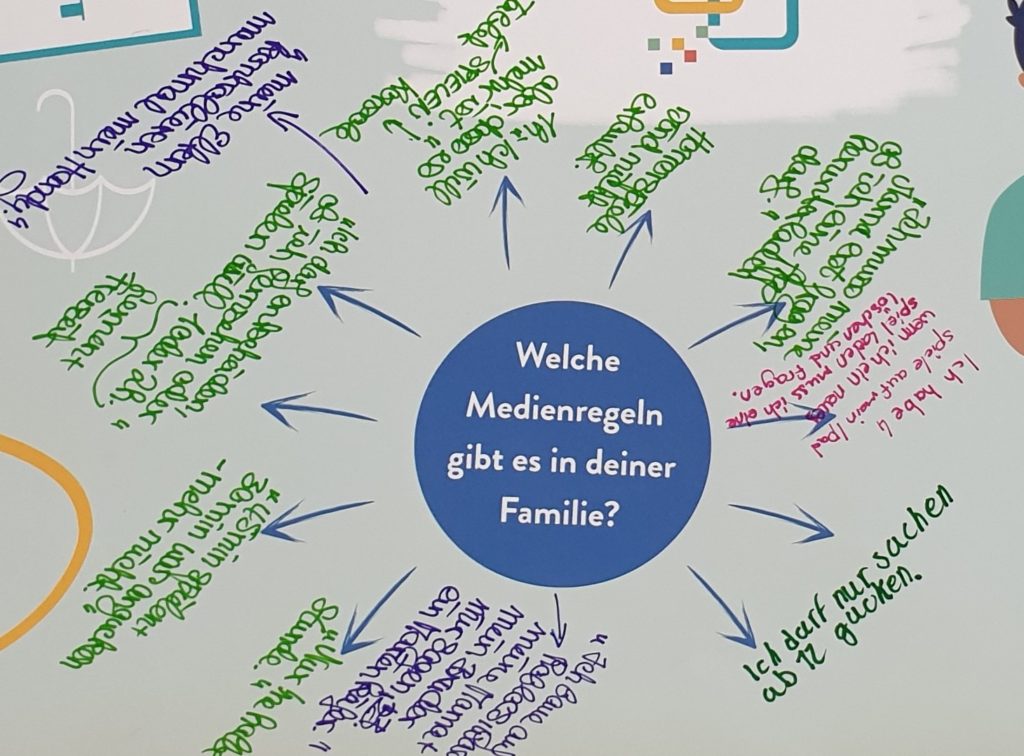 Welche
Medienregeln
gibt es in deiner
Familie?
meine Eltern
kontrollieren
manchmal mein Handy."
Ich will
aber, dass es
mehr ist."
SPIELEN
Konsole
Horrorspiele
sind nicht
erlaubt.
"Ich muss meine
Mama erst fragen,
ob ich eine App
herunterladen
darf."
Ich habe 4
spiele auf mein Ipad
wenn ich ein neues
spiel laden muss ich eine
löschen und fragen.
Ich darf nur sachen
ab 12 gucken.
"Ich baue auf
meine Mama +
mein Bruder
mir sagen, z.B.
ein
"Nur 'ne halbe
Stunde."
"45 min spielen +
30 min was angucken
- mehr nicht!"
"Ich darf entscheiden,
ob ich fernsehen oder
spielen will. 1 oder 2h."